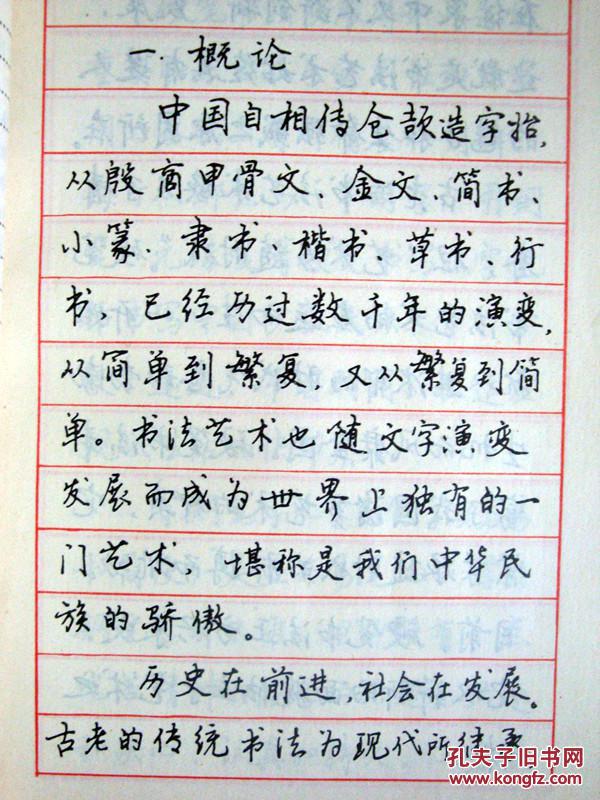 一. 概论
中国自相传仓颉造字始,
从殷商甲骨文、金文、简书、
小篆、隶书、楷书、草书、行
书, 已经历过数千年的演变,
从简单到繁复, 又从繁复到简
单。书法艺术也随文字演变
发展而成为世界上独有的一
门艺术, 堪称是我们中华民
族的骄傲。
历史在前进, 社会在发展。
古老的传统书法为现代所继承
孔夫子旧书网
www.kongfz.com